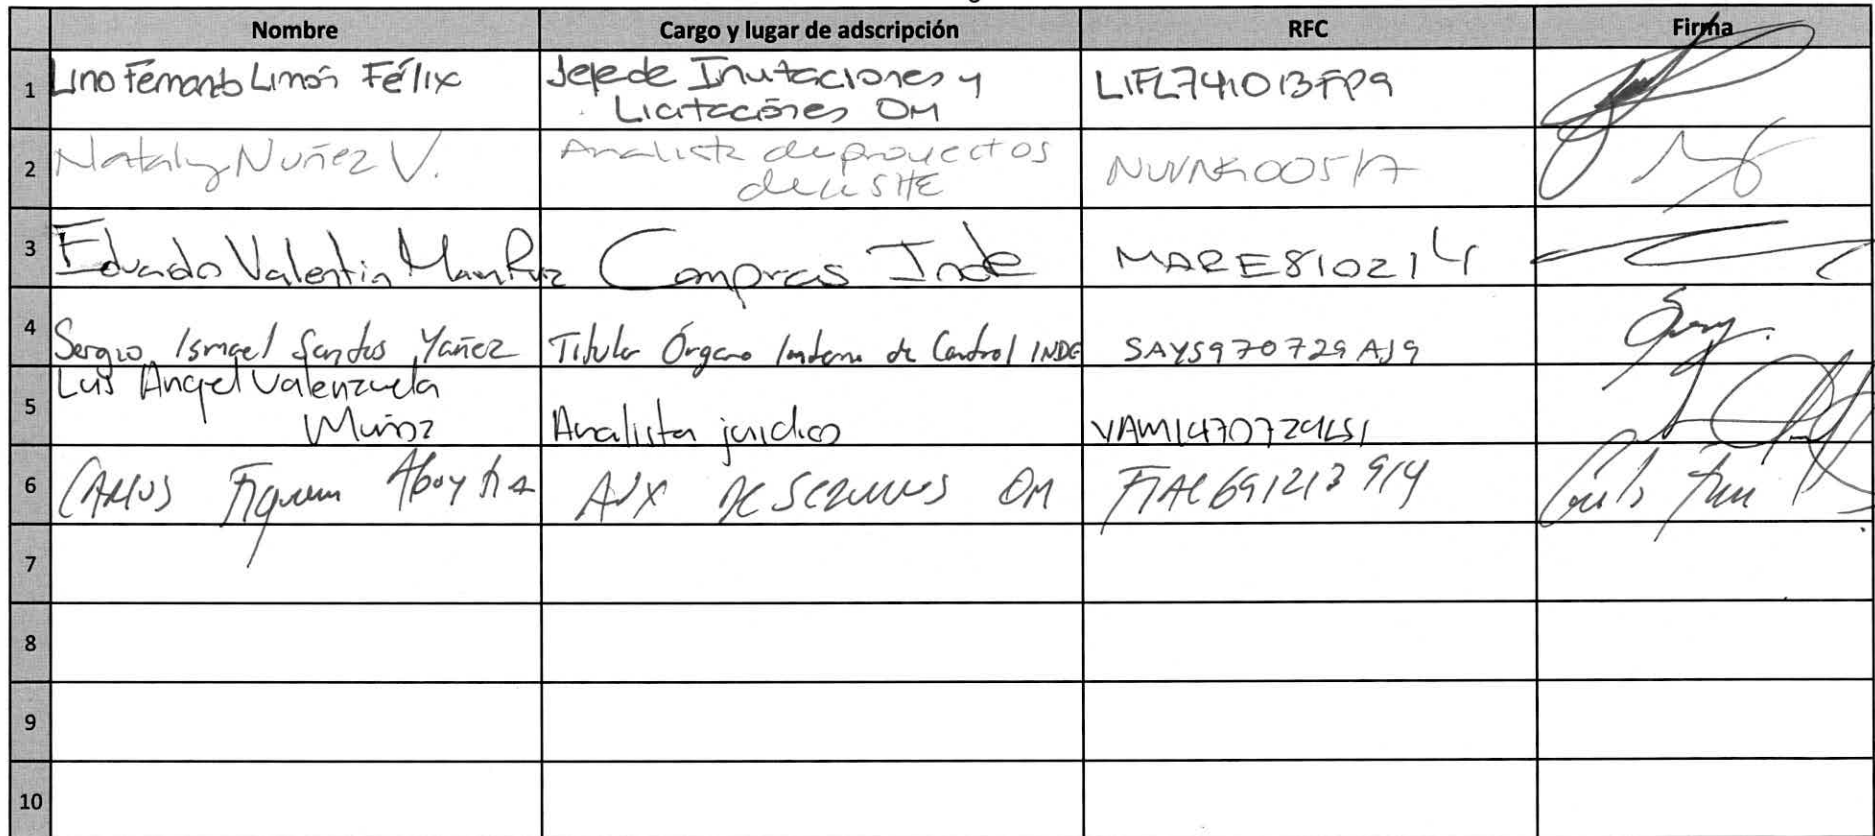 Nombre Cargo y lugar de adscripción RFC Firma
1 Lino Fernando Limón Félix Jefe de Invitaciones y
Licitaciones OM LIFL741013FP9
2 Nataly Nuñez V. Analista de proyectos
de la SHE
3 Eduardo Valentin Compras Inde MARE810214
4 Sergio Ismael Santos Yañez Titular Órgano Interno de Control INDE SAYS970729AJ9
5 Luis Angel Valenzuela
Muñoz Analista juridico
6 Carlos Figueroa AUX DE SERVICIOS OM
7
8
9
10